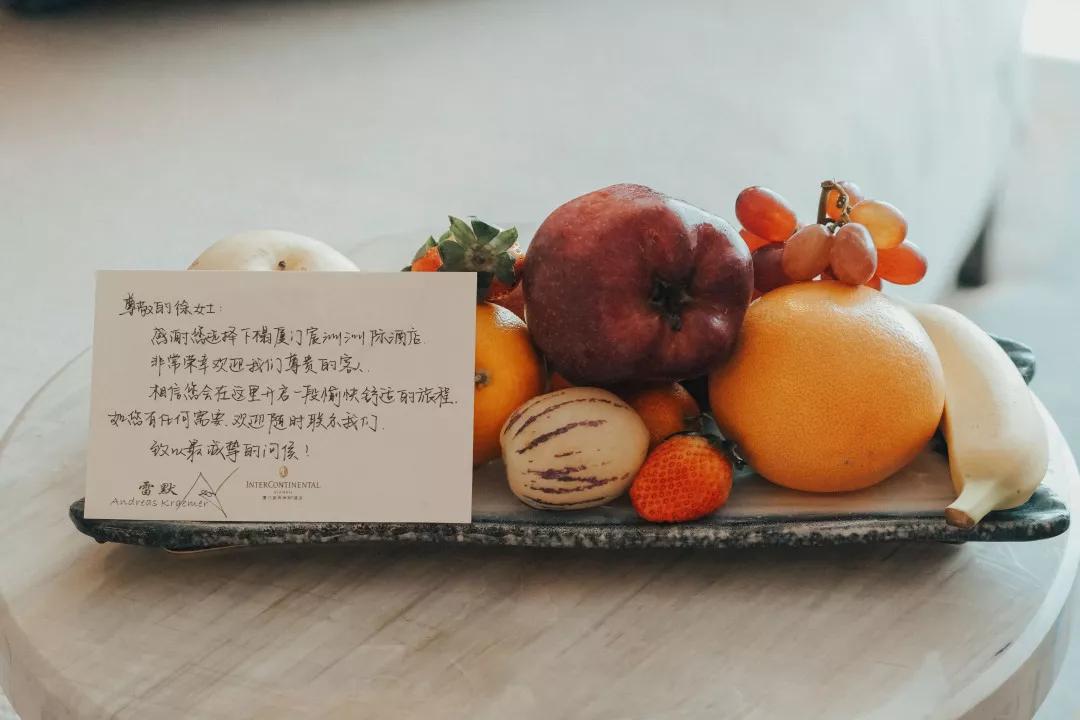 尊敬的徐女士:
感谢您选择下榻厦门宸洲洲际酒店.
非常荣幸欢迎我们尊贵的客人.
相信您会在这里开启一段愉快舒适的旅程.
如您有任何需要.欢迎随时联系我们.
致以最诚挚的问候!
雷默
Andreas Krgemer
INTERCONTINENTAL
XIAMEN
厦门宸洲洲际酒店